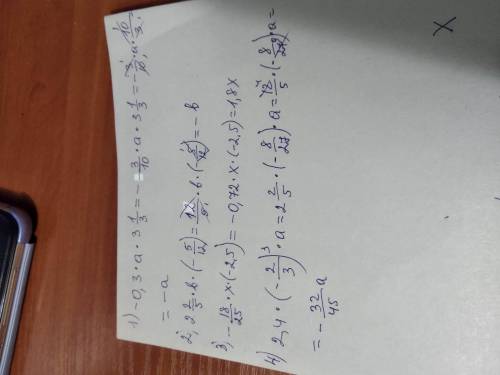 1) -0,3·a·3 1/3 = -3/10·a·3 1/3 = -3/10·a·10/3 =
= -a
2) 2 2/5·b·(-5/12) = 12/5·b·(-5/12) = -b
3) -18/25·x·(-2,5) = -0,72·x·(-2,5) = 1,8x
4) 2,4·(-2/3)³·a = 2 2/5·(-8/27)·a = 12/5·(-8/27)·a =
= -32/45 a
X